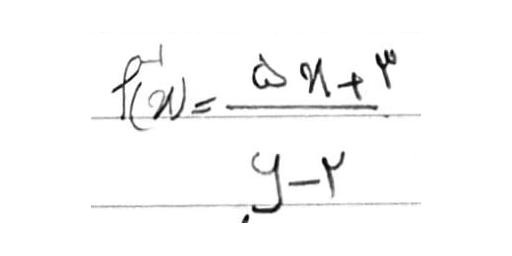 f⁻¹(x) = (۵x + ۳) / (y - ۲)